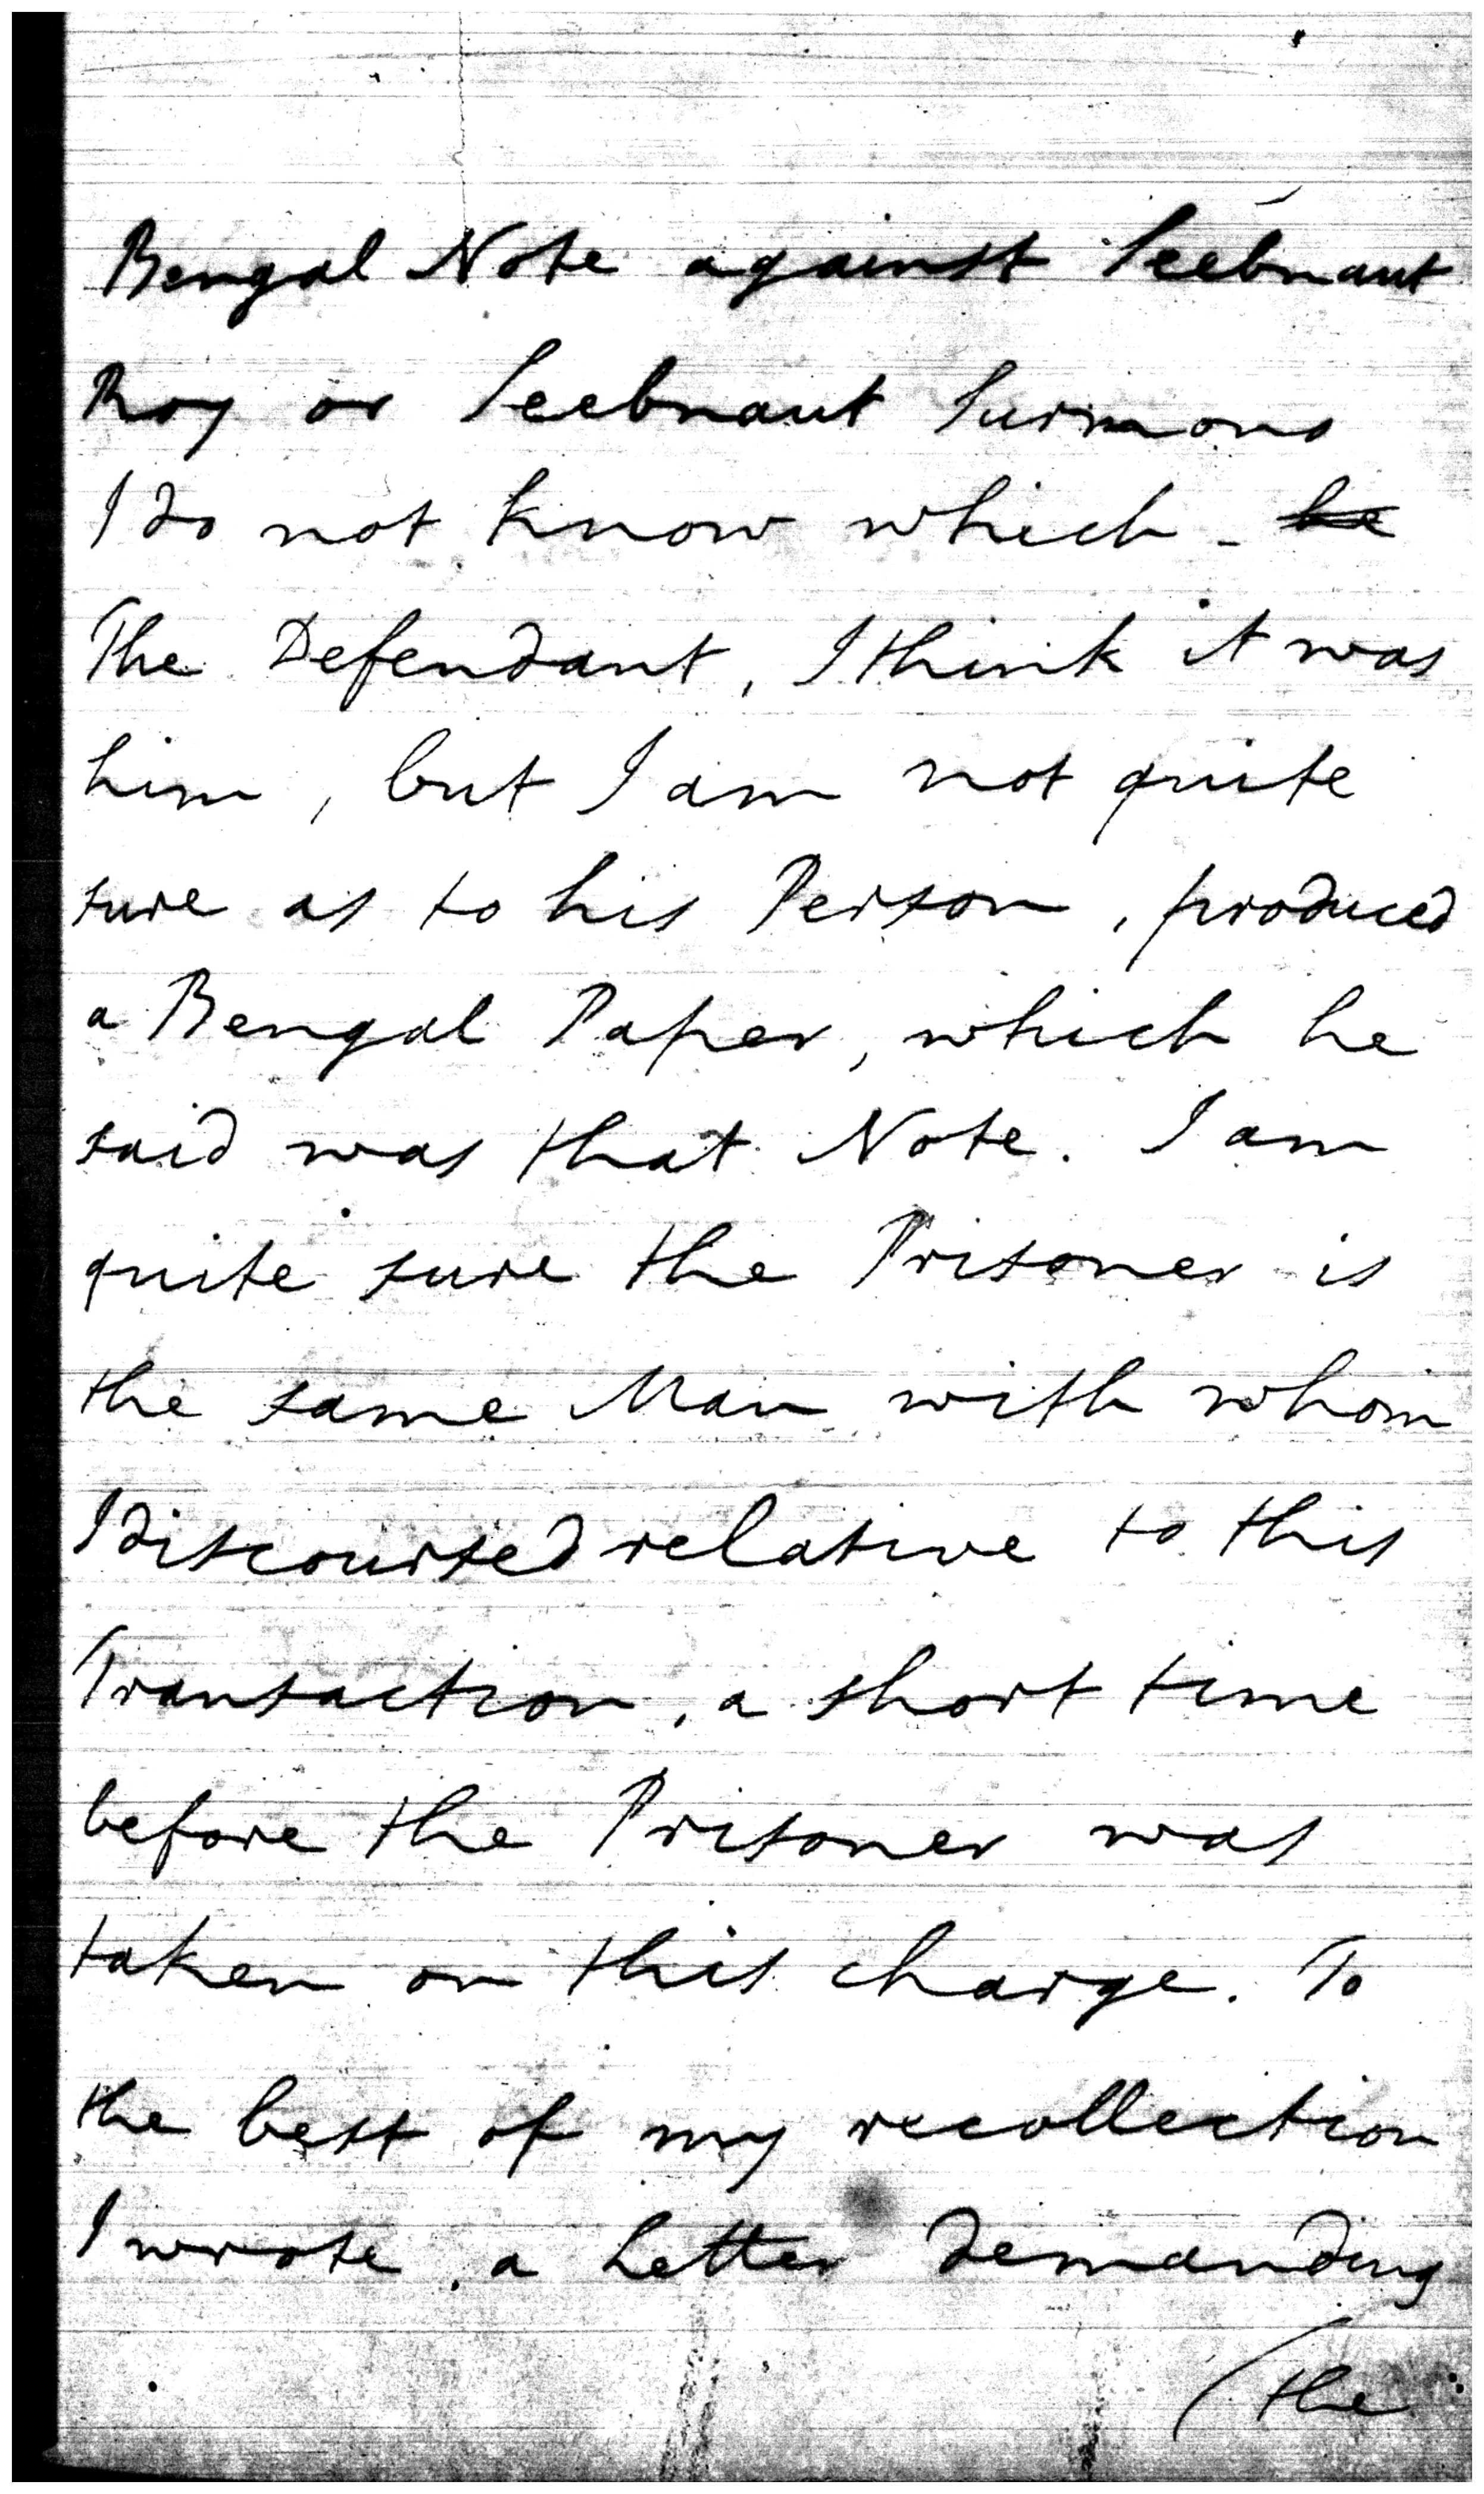 Bengal Note against Seebnaut
Roy or Seebnaut Surmono
I do not know which - he
The Defendant, I think it was
him, but I am not quite
sure as to his Person, produced
a Bengal Paper, which he
said was that Note. I am
quite sure the Prisoner is
the same Man with whom
I discoursed relative to this
Transaction, a short time
before the Prisoner was
taken on this charge. To
the best of my recollection
I wrote a Letter demanding
(the